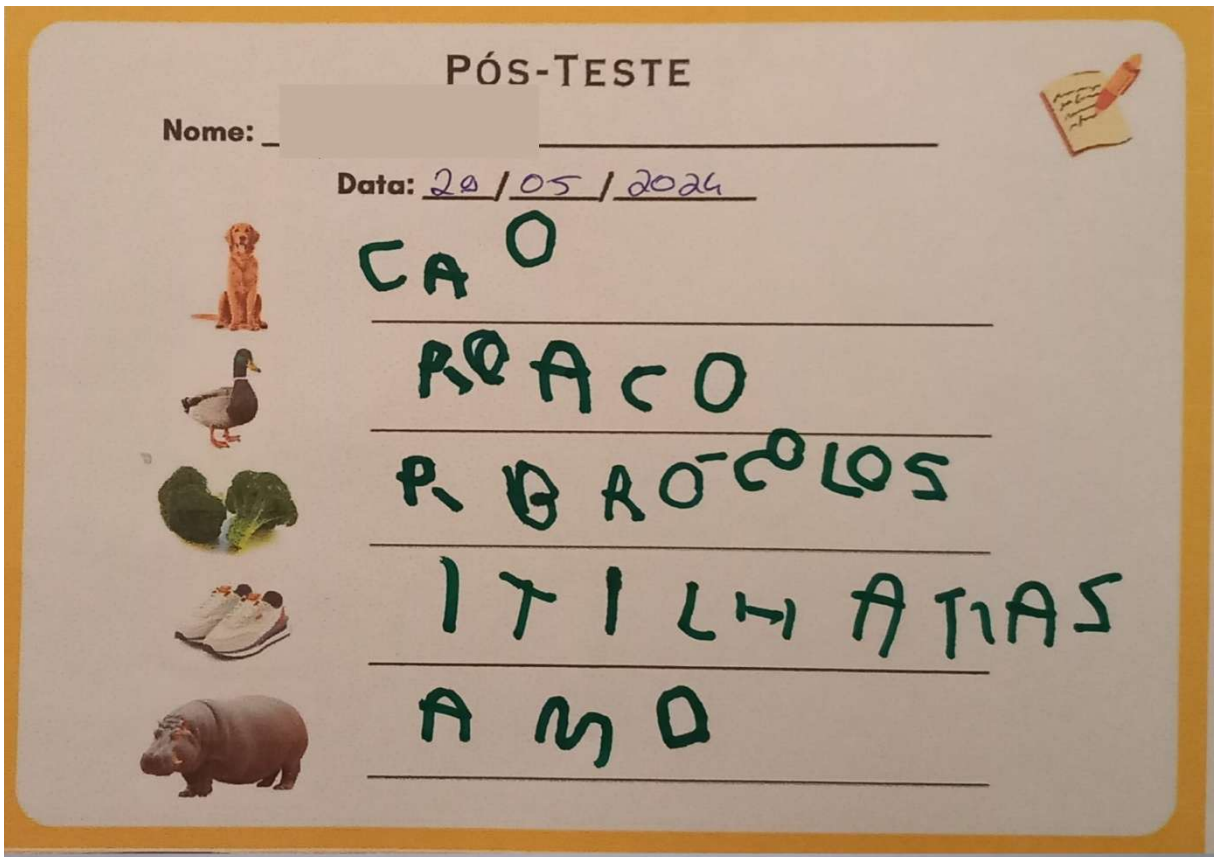 PÓS-TESTE
Nome:
Data: 20/05/2024
CAO
ROACO
R BRO-COLOS
ITILHATIAS
AMO